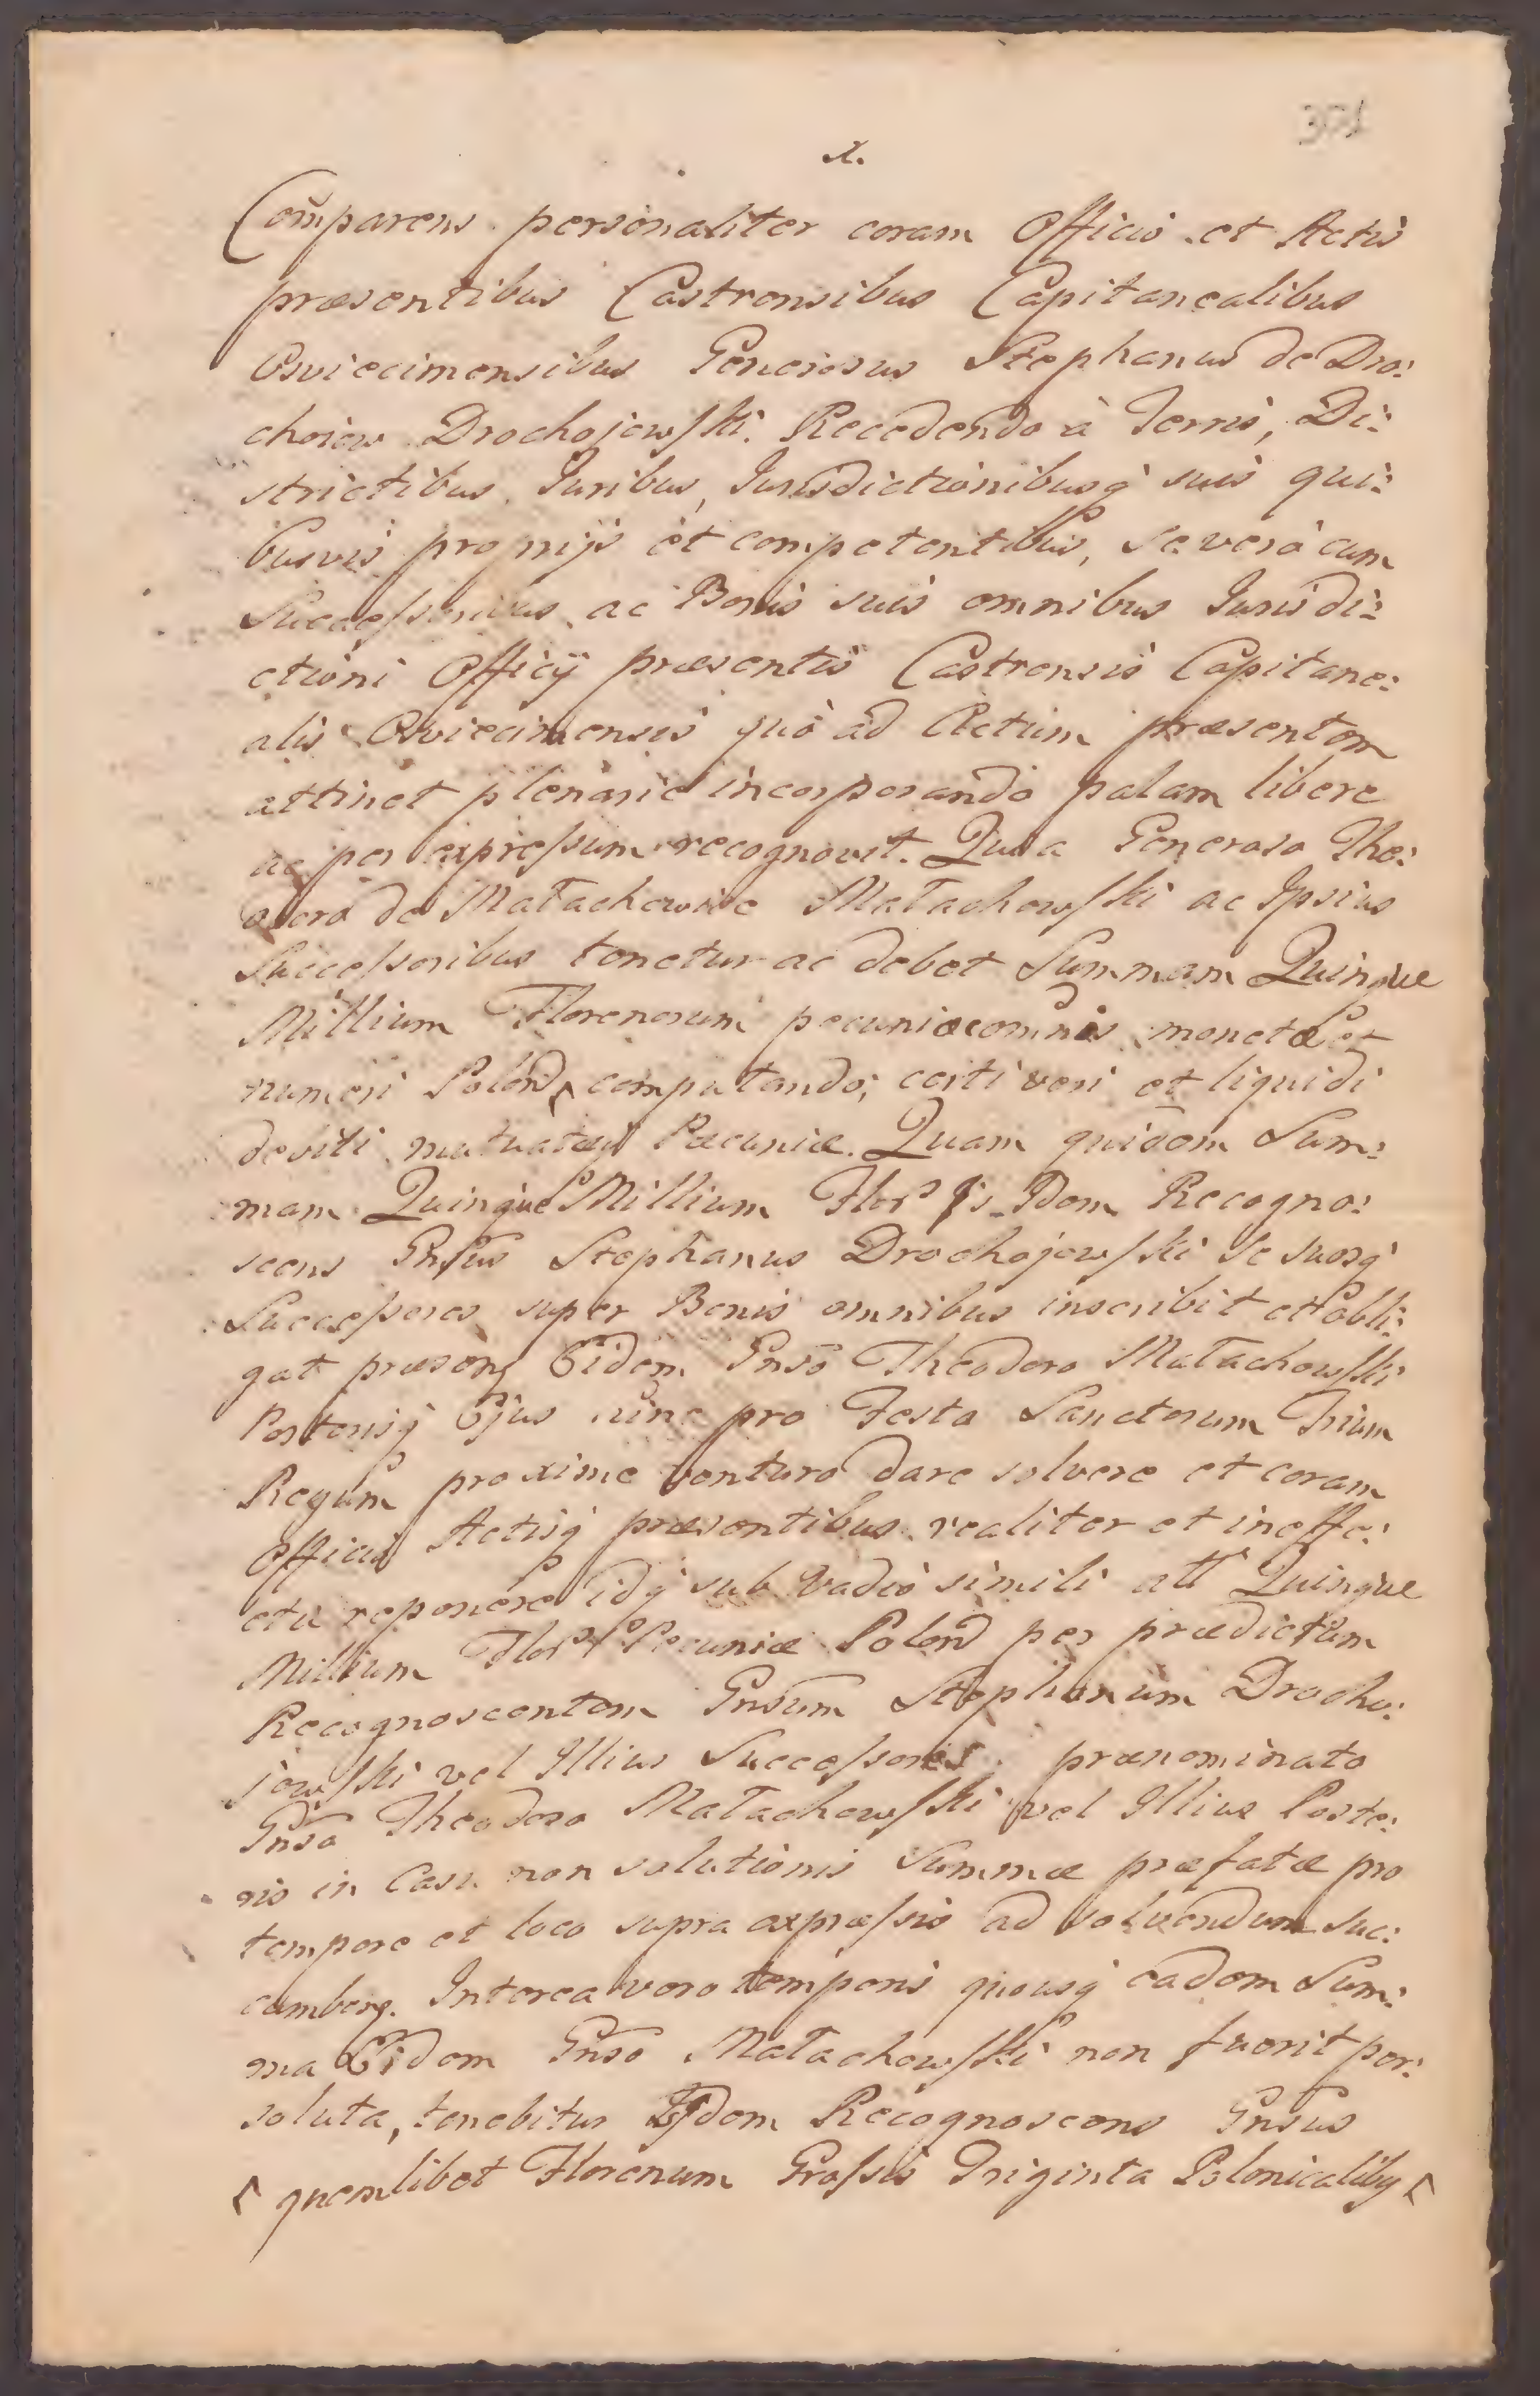 x.
Comparens personaliter coram Officio et Actis
præsentibus Castrensibus Capitanealibus
Osviecimensibus Generosus Stephanus de Dro:
choiow Drochojowski. Recedendo à Terris, Di:
strictibus, Juribus, Jurisdictionibusq́ suis qui:
busvis proprijs et competentibus, se verò cum
Successoribus ac Bonis suis omnibus Jurisdi:
ctioni Officij præsentis Castrensis Capitane:
alis Osviecimensis quò ad Actum præsentem
attinet plenarie incorporando palam libere
ac per expressum recognovit. Quia Generoso The:
odoro de Małachowice Małachowski ac Ipsius
Successoribus tenetur ac debet Summam Quinque
Millium Florenorum pecuniæ comñis monetæ et
numeri Polon computando; certi veri et liquidi
debiti mutuatæq́ Pæcuniæ. Quam quidem Sum:
mam Quinque Millium Flor Is Dem Recogno:
scens Gnsus Stephanus Drochojowski se suosq́
Successores super Bonis omnibus inscribit et obli:
gat præsen Eidem Gnso Theodoro Małachowski
Posterisq́ Ejus hinc pro Festa Sanctorum Trium
Regum proxime venturo dare solvere et coram
Officio Actisq́ præsentibus realiter et in effe:
ctu reponere idq́ sub Vadio simili att Quinque
Millium Flor Pecuniæ Polon per prædictum
Recognoscentem Gnsum Stephanum Drocho:
jowski vel Illius Successores prænominato
Gnso Theodoro Małachowski vel Illius Poste:
ris in Casu non solutionis Summæ præfatæ pro
tempore et loco supra expræssis ad solvendum suc:
cumben. Interea vero temporis quousq́ eadem Sum:
ma Eidem Gnso Małachowski non fuerit per:
soluta, tenebitur Isdem Recognoscens Gnsus
quemlibet Florenum Grossis Triginta Polonicalibq